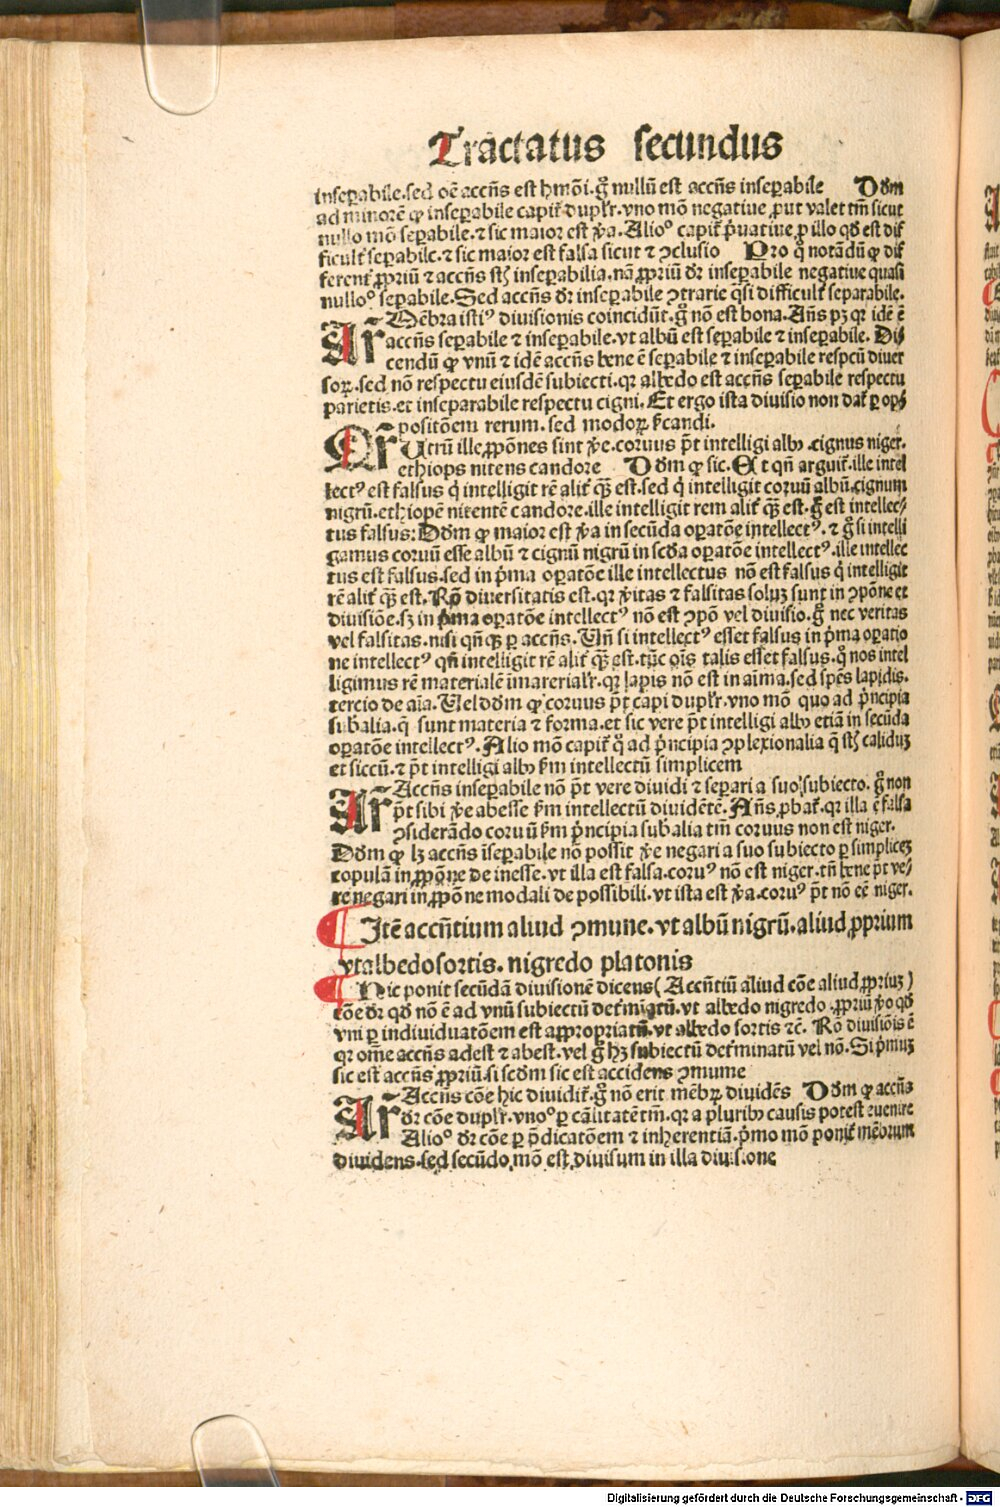 Tractatus secundus
inseꝑabile.sed oē accñs est hmōi.gͦ nullū est accñs inseꝑabile Dōm
ad minorē ꝙ inseꝑabile capit̄ duplr̄.vno mō negatiue ꝓut valet tm̄ sicut
nullo mō seꝑabile.⁊ sic maior est ꝟa.Alioꝰ capit̄ pͥuatiue ꝓ illo qd̄ est dif
ficult̄ seꝑabile.⁊ sic maior est falsa sicut ⁊ ꝯclusio Pro qͦ notādū ꝙ dif
ferent̄ ꝓpriū ⁊ accñs st̄ inseꝑabilia.nā ꝓpriū dr̄ inseꝑabile negatiue quasi
nulloꝰ seꝑabile.Sed accñs dr̄ inseꝑabile ꝯtrarie qͣsi difficult̄ separabile.
Ar̄ Mēbra istiꝰ diuisionis coincidūt.gͦ nō est bona.Añs pꝫ qꝛ idē ē
accñs seꝑabile ⁊ inseꝑabile.vt albū est seꝑabile ⁊ inseꝑabile. Di
cendū ꝙ vnū ⁊ idē accñs bene ē seꝑabile ⁊ inseꝑabile respcū diuer
soꝝ.sed nō respectu eiusdē subiecti.qꝛ albedo est accñs seꝑabile respectu
parietis.et inseparabile respectu cigni.Et ergo ista diuisio non dat̄ ꝑ op
positōem rerum.sed modoꝝ p̄candi.
Qr̄ Utrū ille ꝓpōnes sint ꝟe.coruus pt̄ intelligi albꝰ.cignus niger.
ethiops nitens candore Dōm ꝙ sic.Et qn̄ arguit̄.ille intel
lectꝰ est falsus qͥ intelligit rē alit̄ qͣꝫ est.sed qͥ intelligit coruū albū.cignum
nigrū.ethiopē nitentē candore.ille intelligit rem alit̄ qͣꝫ est.gͦ est intellec⸗
tus falsus:Dōm ꝙ maior est ꝟa in secūda oꝑatōe intellectꝰ.⁊ gͦ si intelli
gamus coruū esse albū ⁊ cignū nigrū in scd̄a oꝑatōe intellectꝰ.ille intellec
tus est falsus.sed in pͥma oꝑatōe ille intellectus nō est falsus qͥ intelligit
rē alit̄ qͣꝫ est.Rō diuersitatis est.qꝛ ꝟitas ⁊ falsitas soluꝫ sunt in ꝯpōne et
diuisiōe.sꝫ in pͥma oꝑatōe intellectꝰ nō est ꝯpō vel diuisio.gͦ nec veritas
vel falsitas.nisi qn̄ qꝫ ꝑ accñs.Vn̄ si intellectꝰ esset falsus in pͥma oꝑatio
ne intellectꝰ qn̄ intelligit rē alit̄ qͣꝫ est.tūc oīs talis esset falsus.qͥ nos intel
ligimus rē materialē īmaterialr̄.qꝛ lapis nō est in aīma.sed spēs lapidis.
tercio de aīa.Vel dōm ꝙ coruus pt̄ capi duplr̄.vno mō quo ad pͥncipia
sub̄alia.q̄ sunt materia ⁊ forma.et sic vere pt̄ intelligi albꝰ etiā in secūda
oꝑatōe intellectꝰ.Alio mō capit̄ qͦ ad pͥncipia ꝯplexionalia q̄ st̄ caliduꝫ
et siccū.⁊ pt̄ intelligi albꝰ ẜm intellectū simplicem
Ar̄ Accñs inseꝑabile nō pt̄ vere diuidi ⁊ separi a suo subiecto.gͦ non
pt̄ sibi ꝟe abesse ẜm intellectū diuidētē.Añs ꝓbat̄.qꝛ illa ē falsa
ꝯsiderādo coruū ẜm pͥncipia sub̄alia tm̄ coruus non est niger.
Dōm ꝙ lꝫ accñs īseꝑabile nō possit ꝟe negari a suo subiecto ꝑ simplicē
copulā in ꝓpōne de inesse.vt illa est falsa.coruꝰ nō est niger.tn̄ bene pt̄ ve⸗
re negari in ꝓpōne modali de possibili.vt ista est ꝟa.coruꝰ pt̄ nō eē niger.
¶ Itē accn̄tium aliud ꝯmune.vt albū nigrū.aliud ꝓprium
vt albedo sortis.nigredo platonis
¶ Hic ponit secūdā diuisionē dicens( Accn̄tiū aliud cōe aliud ꝓpriuꝫ )
cōe dr̄ qd̄ nō ē ad vnū subiectū det̄miatū.vt albedo nigredo.ꝓpriū ꝟo qd̄
vni ꝑ indiuiduatōem est appropriatū.vt albedo sortis ⁊c̄. Rō diuisiōis ē
qꝛ ome accñs adest ⁊ abest.vel gͦ hꝫ subiectū det̄minatū vel nō.Si pͥmuꝫ
sic est accñs ꝓpriū.si scd̄m sic est accidens ꝯmune
Ar̄ Accñs cōe hic diuidit̄.gͦ nō erit mēbꝝ diuidēs Dōm ꝙ accñs
dr̄ cōe duplr̄.vnoꝰ ꝑ cālitatē tm̄.qꝛ a pluribꝰ causis potest euenire
Alioꝰ dr̄ cōe ꝑ p̄dicatōem ⁊ inherentiā.pͥmo mō ponit̄ mēbrum
diuidens.sed secūdo mō est diuisum in illa diuisione
Digitalisierung gefördert durch die Deutsche Forschungsgemeinschaft - DFG